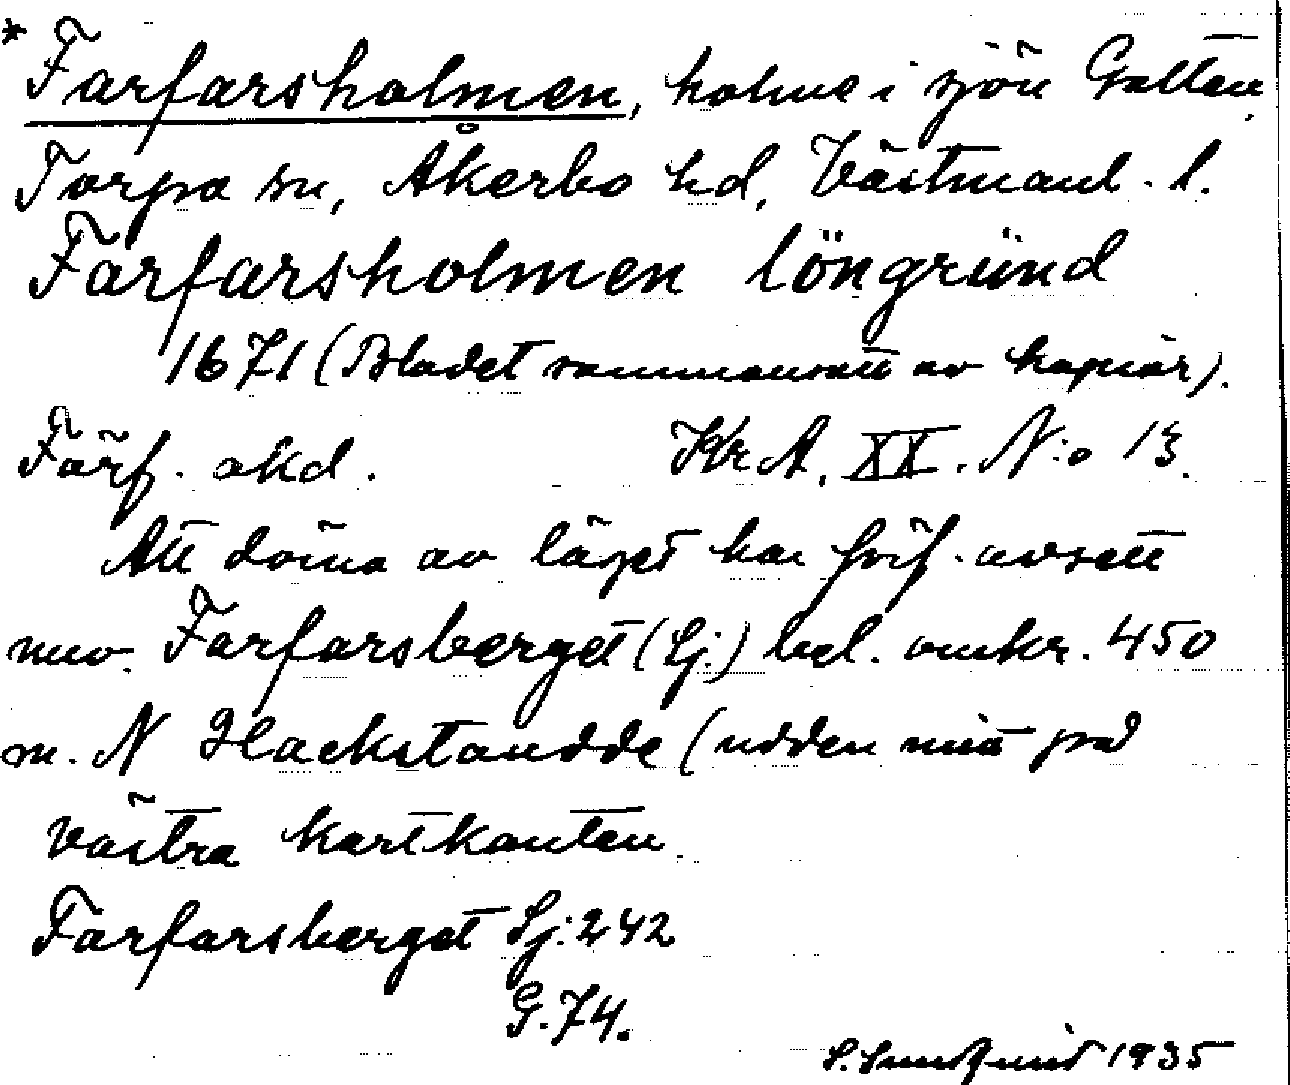 * Farfarsholmen, holme i sjön Galten,
Torpa sn, Åkerbo hd, Västmanl. l.
Farfarsholmen löngründ
1671 (Bladet sammansatt av kopior).
Förf. okd. Kr A. XX. N:o 13.
Att döma av läget har förf. avsett
nuv. Farfarsberget (Sj.) bel. omkr. 450
m. N Hackstaudde (udden mitt på
västra kartkanten.
Farfarsberget Sj: 242
G. 74.
1935